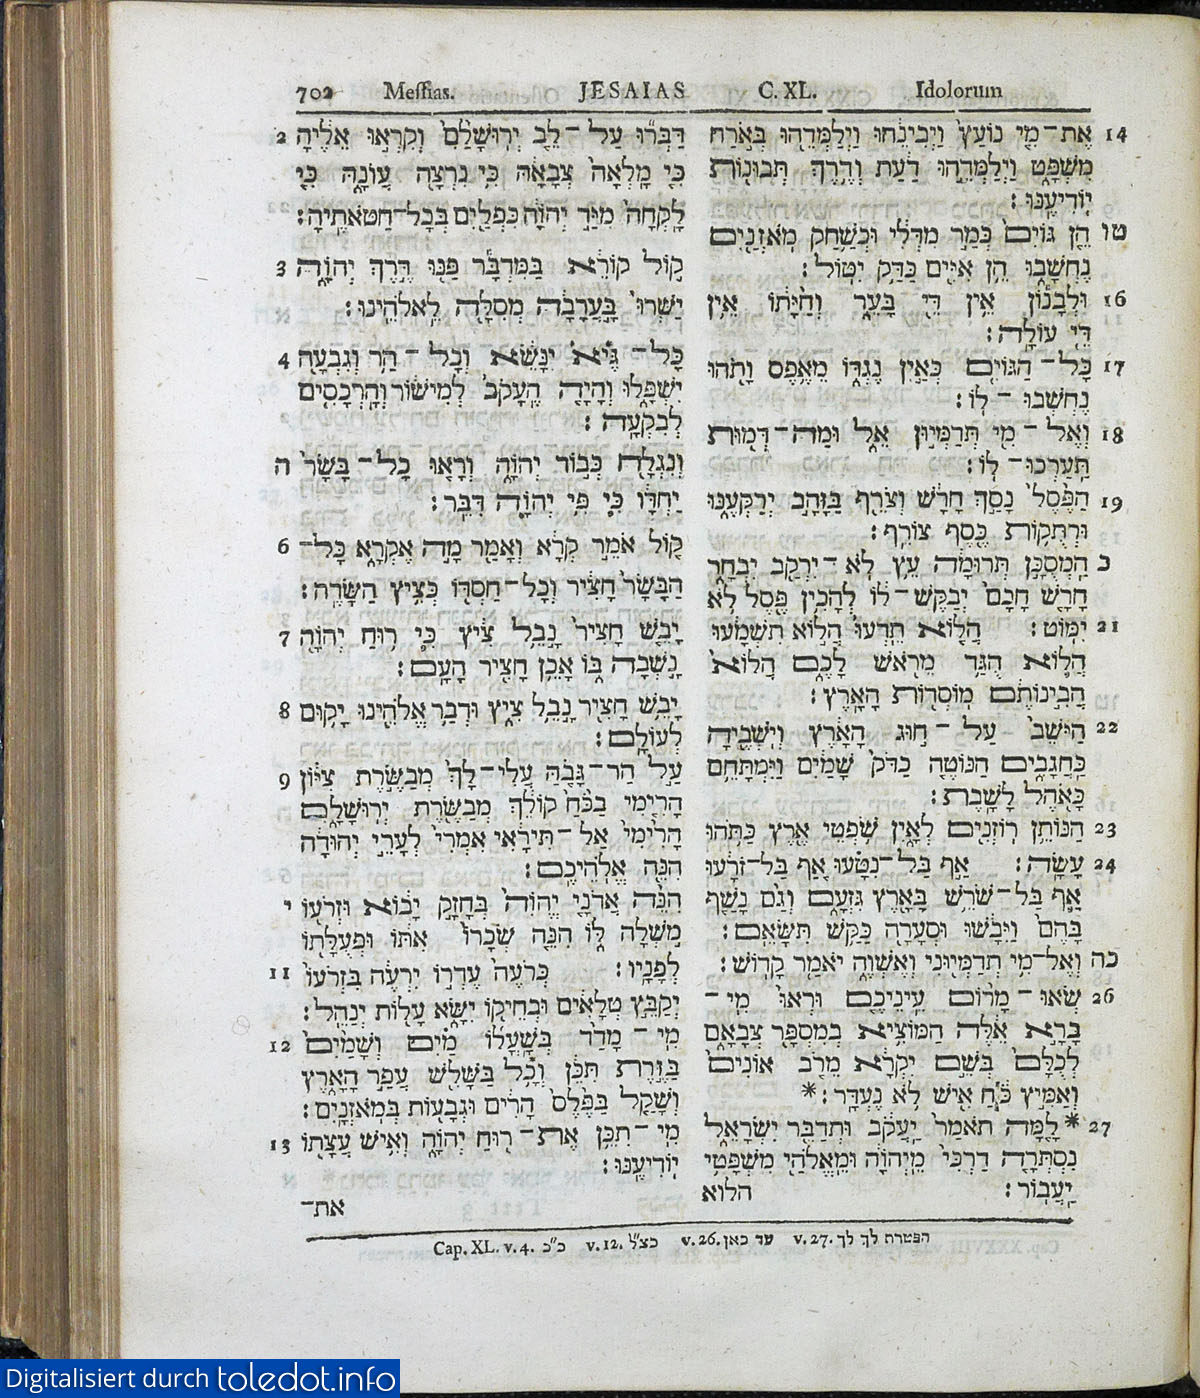 702 Messias. JESAIAS C. XL. Idolorum
דַּבְּרוּ עַל־לֵב יְרוּשָׁלִַם וְקִרְאוּ אֵלֶיהָ 2
כִּי מָלְאָה צְבָאָהּ כִּי נִרְצָה עֲוֹנָהּ כִּי
לָקְחָה מִיַּד יְהוָֹה כִּפְלַיִם בְּכָל־חַטֹּאתֶיהָ׃
קוֹל קוֹרֵא בַּמִּדְבָּר פַּנּוּ דֶּרֶךְ יְהוָֹה 3
יַשְּׁרוּ בָּעֲרָבָה מְסִלָּה לֵאלֹהֵינוּ׃
כָּל־גֶּיא יִנָּשֵׂא וְכָל־הַר וְגִבְעָה 4
יִשְׁפָּלוּ וְהָיָה הֶעָקֹב לְמִישׁוֹר וְהָרְכָסִים
לְבִקְעָה׃
וְנִגְלָה כְּבוֹד יְהוָֹה וְרָאוּ כָל־בָּשָׂר ה
יַחְדָּו כִּי פִּי יְהוָֹה דִּבֵּר׃
קוֹל אֹמֵר קְרָא וְאָמַר מָה אֶקְרָא כָּל־ 6
הַבָּשָׂר חָצִיר וְכָל־חַסְדּוֹ כְּצִיץ הַשָּׂדֶה׃
יָבֵשׁ חָצִיר נָבֵל צִיץ כִּי רוּחַ יְהוָֹה 7
נָשְׁבָה בּוֹ אָכֵן חָצִיר הָעָם׃
יָבֵשׁ חָצִיר נָבֵל צִיץ וּדְבַר אֱלֹהֵינוּ יָקוּם 8
לְעוֹלָם׃
עַל הַר־גָּבֹהַּ עֲלִי־לָךְ מְבַשֶּׂרֶת צִיּוֹן 9
הָרִימִי בַכֹּחַ קוֹלֵךְ מְבַשֶּׂרֶת יְרוּשָׁלָםִ
הָרִימִי אַל־תִּירָאִי אִמְרִי לְעָרֵי יְהוּדָה
הִנֵּה אֱלֹהֵיכֶם׃
הִנֵּה אֲדֹנָי יֱהוִֹה בְּחָזָק יָבוֹא וּזְרֹעוֹ י
מֹשְׁלָה לּוֹ הִנֵּה שְׂכָרוֹ אִתּוֹ וּפְעֻלָּתוֹ
לְפָנָיו׃ כְּרֹעֶה עֶדְרוֹ יִרְעֶה בִּזְרֹעוֹ 11
יְקַבֵּץ טְלָאִים וּבְחֵיקוֹ יִשָּׂא עָלוֹת יְנַהֵל׃
מִי־מָדַד בְּשָׁעֳלוֹ מַיִם וְשָׁמַיִם 12
בַּזֶּרֶת תִּכֵּן וְכָל בַּשָּׁלִשׁ עֲפַר הָאָרֶץ
וְשָׁקַל בַּפֶּלֶס הָרִים וּגְבָעוֹת בְּמֹאזְנָיִם׃
מִי־תִכֵּן אֶת־רוּחַ יְהוָֹה וְאִישׁ עֲצָתוֹ 13
יוֹדִיעֶנּוּ׃
את־
14 אֶת־מִי נוֹעָץ וַיְבִינֵהוּ וַיְלַמְּדֵהוּ בְּאֹרַח
מִשְׁפָּט וַיְלַמְּדֵהוּ דַעַת וְדֶרֶךְ תְּבוּנוֹת
יוֹדִיעֶנּוּ׃
טו הֵן גּוֹיִם כְּמַר מִדְּלִי וּכְשַׁחַק מֹאזְנַיִם
נֶחְשָׁבוּ הֵן אִיִּים כַּדַּק יִטּוֹל׃
16 וּלְבָנוֹן אֵין דֵּי בָּעֵר וְחַיָּתוֹ אֵין
דֵּי עוֹלָה׃
17 כָּל־הַגּוֹיִם כְּאַיִן נֶגְדּוֹ מֵאֶפֶס וָתֹהוּ
נֶחְשְׁבוּ־לוֹ׃
18 וְאֶל־מִי תְּדַמְּיוּן אֵל וּמַה־דְּמוּת
תַּעַרְכוּ־לוֹ׃
19 הַפֶּסֶל נָסַךְ חָרָשׁ וְצֹרֵף בַּזָּהָב יְרַקְּעֶנּוּ
וּרְתֻקוֹת כֶּסֶף צוֹרֵף׃
כ הַמְסֻכָּן תְּרוּמָה עֵץ לֹא־יִרְקַב יִבְחָר
חָרָשׁ חָכָם יְבַקֶּשׁ־לוֹ לְהָכִין פֶּסֶל לֹא
21 יִמּוֹט׃ הֲלוֹא תֵדְעוּ הֲלוֹא תִשְׁמָעוּ
הֲלוֹא הֻגַּד מֵרֹאשׁ לָכֶם הֲלוֹא
הֲבִינוֹתֶם מוֹסְדוֹת הָאָרֶץ׃
22 הַיֹּשֵׁב עַל־חוּג הָאָרֶץ וְיֹשְׁבֶיהָ
כַּחֲגָבִים הַנּוֹטֶה כַדֹּק שָׁמַיִם וַיִּמְתָּחֵם
כָּאֹהֶל לָשָׁבֶת׃
23 הַנּוֹתֵן רוֹזְנִים לְאָיִן שֹׁפְטֵי אֶרֶץ כַּתֹּהוּ
24 עָשָׂה׃ אַף בַּל־נִטָּעוּ אַף בַּל־זֹרָעוּ
אַף בַּל־שֹׁרֵשׁ בָּאָרֶץ גִּזְעָם וְגַם נָשַׁף
בָּהֶם וַיִּבָשׁוּ וּסְעָרָה כַּקַּשׁ תִּשָּׂאֵם׃
כה וְאֶל־מִי תְדַמְּיוּנִי וְאֶשְׁוֶה יֹאמַר קָדוֹשׁ׃
26 שְׂאוּ־מָרוֹם עֵינֵיכֶם וּרְאוּ מִי־
בָרָא אֵלֶּה הַמּוֹצִיא בְמִסְפָּר צְבָאָם
לְכֻלָּם בְּשֵׁם יִקְרָא מֵרֹב אוֹנִים
וְאַמִּיץ כֹּחַ אִישׁ לֹא נֶעְדָּר׃ *
27 * לָמָּה תֹאמַר יַעֲקֹב וּתְדַבֵּר יִשְׂרָאֵל
נִסְתְּרָה דַרְכִּי מֵיְהוָֹה וּמֵאֱלֹהַי מִשְׁפָּטִי
יַעֲבוֹר׃ הלוא
Cap. XL. v. 4. כ"כ v. 12. כצ"ל v. 26. עד כאן v. 27. הפטרת לך לך
Digitalisiert durch toledot.info